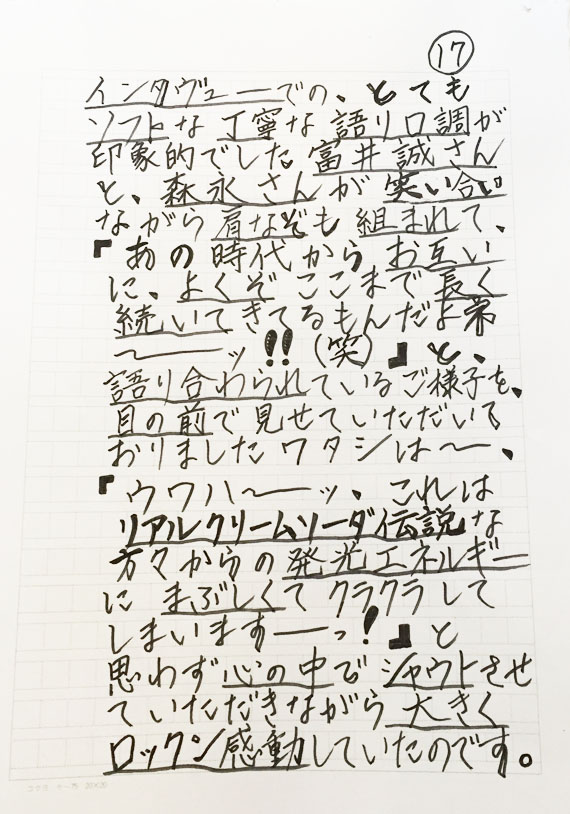 17
インタヴューでの、とても
ソフトな丁寧な語り口調が
印象的でした富井誠さん
と、森永さんが笑い合い
ながら肩なぞも組まれて、
『あの時代からお互い
に、よくぞここまで長く
続いてきてるもんだよ
〜ーーーッ!!(笑)』と、
語り合わられているご様子を、
目の前で見せていただいて
おりましたワタシは〜ー、
『ウワハ〜ーッ、これは
リアルクリームソーダ伝説な
方々からの発光エネルギー
にまぶしくてクラクラして
しまいますーーっ!』と
思わず心の中でシャウトさせ
ていただきながら大きく
ロックン感動していたのです。
コクヨ ケー75 20×20